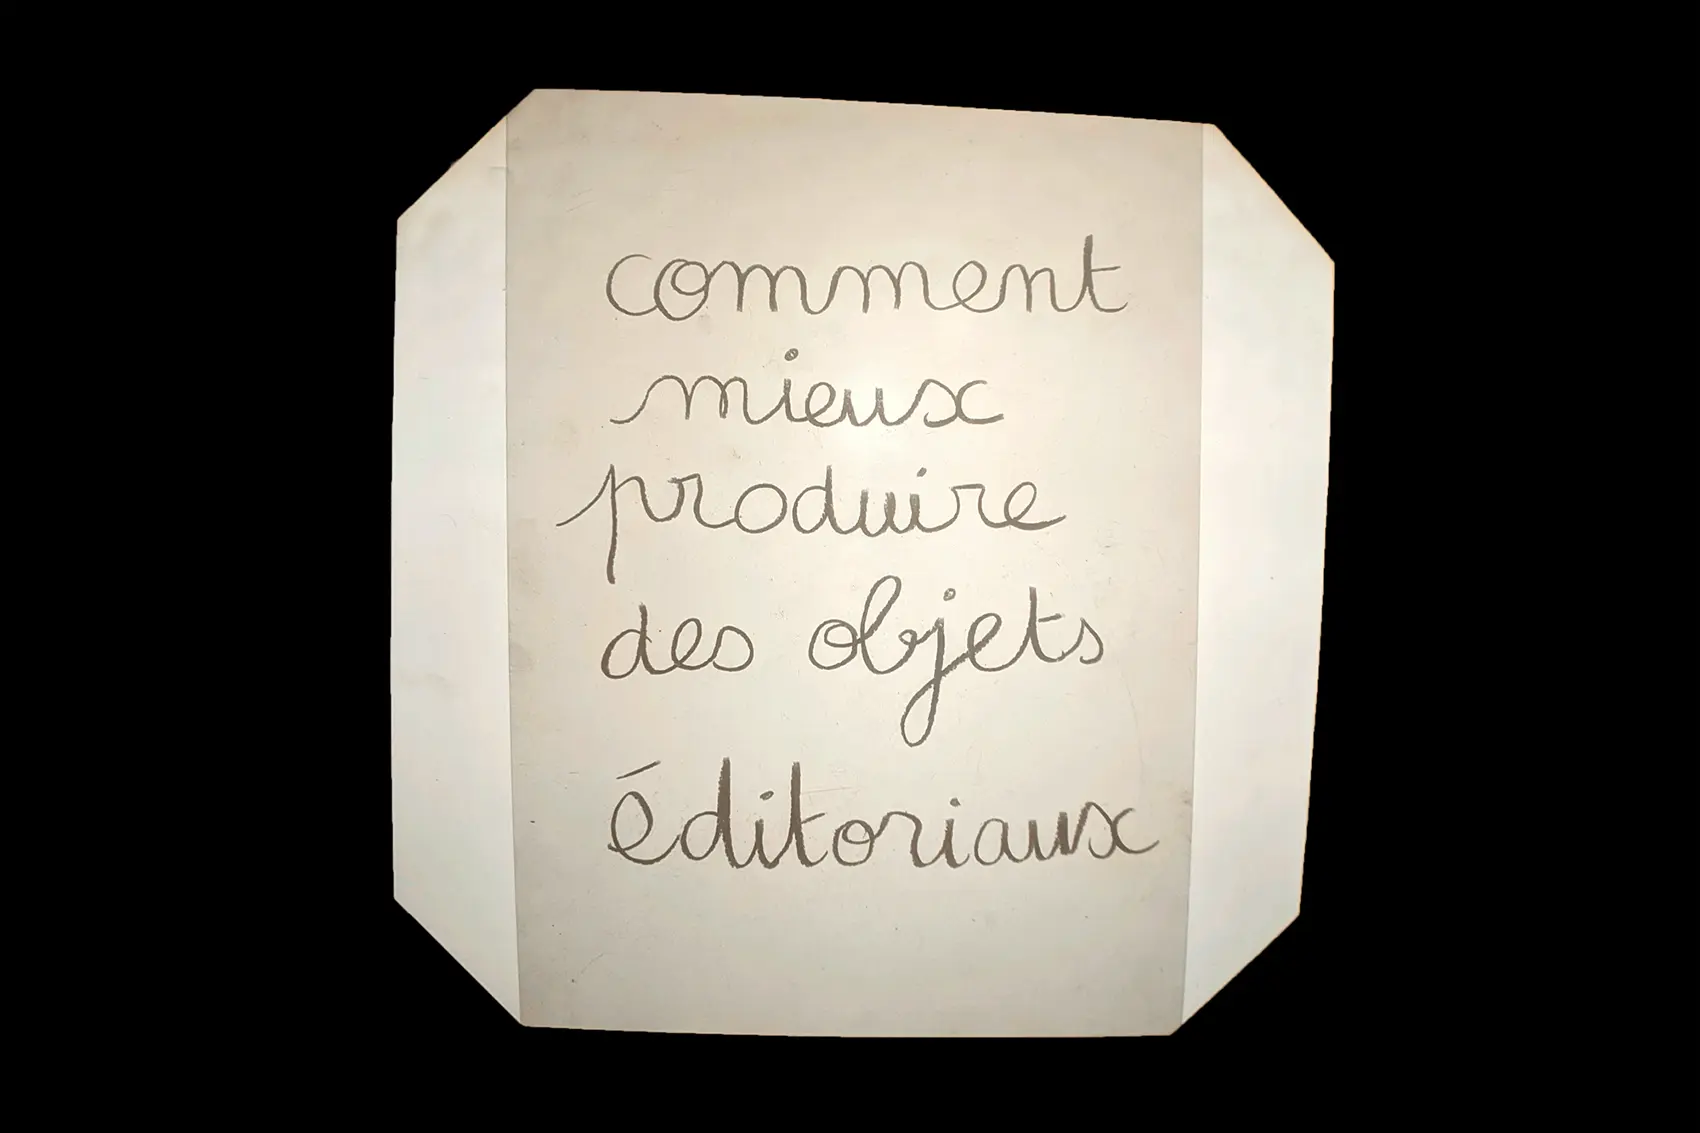 comment
mieux
produire
des objets
éditoriaux